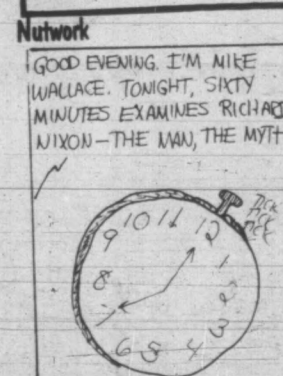 Nutwork
GOOD EVENING. I'M MIKE
WALLACE. TONIGHT, SIXTY
MINUTES EXAMINES RICHARD
NIXON—THE MAN, THE MYTH
10 11 12
9
1
8
2
3
6 5 4
TICK